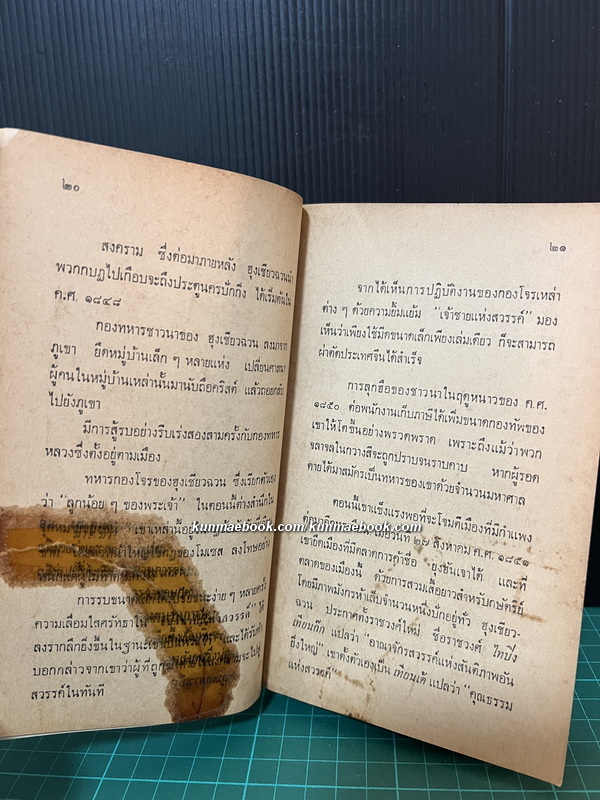 ๒๐
สงคราม ซึ่งต่อมาภายหลัง ฮุงเชียวฉวนนำ
พวกกบฏไปเกือบจะถึงประตูนครปักกิ่ง ได้เริ่มต้นใน
ค.ศ. ๑๘๔๘
กองทหารชาวนาของ ฮุงเชียวฉวน ลงมาจาก
ภูเขา ยึดหมู่บ้านเล็ก ๆ หลายแห่ง เปลี่ยนศาสนา
ผู้คนในหมู่บ้านเหล่านั้นมานับถือคริสต์ แล้วถอยกลับ
ไปยังภูเขา
มีการสู้รบอย่างรีบเร่งสองสามครั้งกับกองทหาร
หลวงซึ่งตั้งอยู่ตามเมือง
ทหารกองโจรของฮุงเชียวฉวน ซึ่งเรียกตัวเอง
ว่า “ลูกน้อย ๆ ของพระเจ้า” ในตอนนี้ต่างสำนึกใน
เขาเหล่านั้นอยู่
ของโมเสส ลงโทษอย่าง
การรบขนาด ชนะง่าย ๆ หลายครั้ง
ความเลื่อมใสศรัทธาใน
ลงรากลึกยิ่งขึ้นในฐานะเจ้า และได้รับคำ
บอกกล่าวจากเขาว่าผู้ที่ถูก จะไปสู่
สวรรค์ในทันที
๒๑
จากได้เห็นการปฏิบัติงานของกองโจรเหล่า
ต่าง ๆ ด้วยความยิ้มแย้ม “เจ้าชายแห่งสวรรค์” มอง
เห็นว่าเพียงใช้มีดขนาดเล็กเพียงเล่มเดียว ก็จะสามารถ
ผ่าตัดประเทศจีนได้สำเร็จ
การลุกฮือของชาวนาในฤดูหนาวของ ค.ศ.
๑๘๕๐ ต่อพนักงานเก็บภาษีได้เพิ่มขนาดกองทัพของ
เขาให้โตขึ้นอย่างพรวดพราด เพราะถึงแม้ว่าพวก
จลาจลในกวางสีจะถูกปราบจนราบคาบ หากผู้รอด
ตายได้มาสมัครเป็นทหารของเขาด้วยจำนวนมหาศาล
ตอนนี้เขาแข็งแรงพอที่จะโจมตีเมืองที่มีกำแพง
วันที่ ๒๗ สิงหาคม ค.ศ. ๑๘๕๑
เขายึดเมืองที่มีตลาดการค้าชื่อ ยุงอันเจาได้ และที่
ตลาดของเมืองนี้ ด้วยการสวมเสื้อยาวสำหรับกษัตริย์
โดยมีภาพมังกรห้าเล็บจำนวนหนึ่งปักอยู่ทั่ว ฮุงเซียว-
ฉวน ประกาศตั้งราชวงศ์ใหม่ ชื่อราชวงศ์ ไทปิง
เทียนกึก แปลว่า “อาณาจักรสวรรค์แห่งสันติภาพอัน
ยิ่งใหญ่” เขาตั้งตัวเองเป็น เทียนเต้ แปลว่า “คุณธรรม
แห่งสวรรค์”
kunmaebook.com/kunmaebook.com